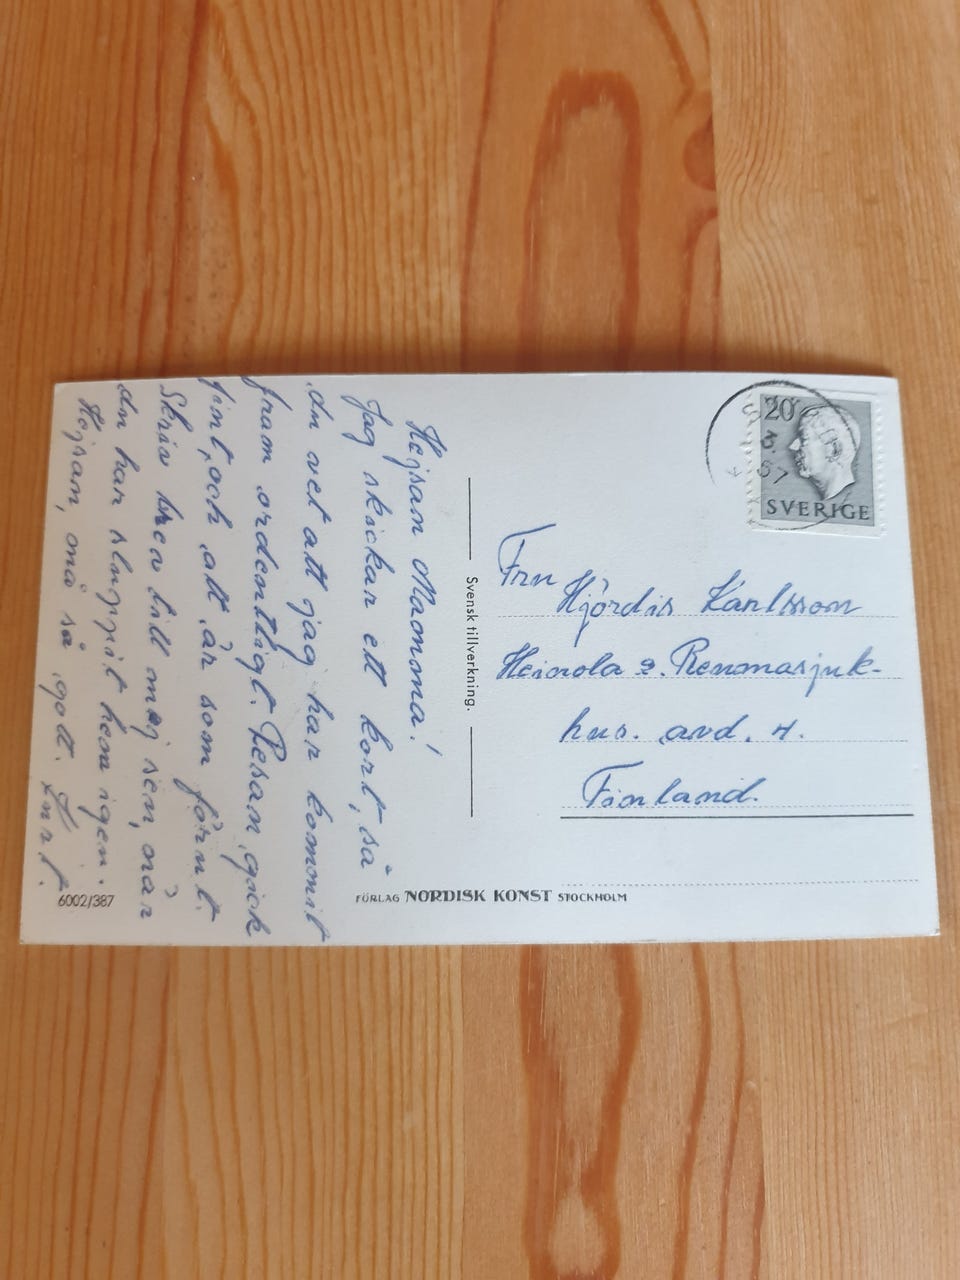 Hejsan Mamma!
Jag skickar ett kort, så
du vet att jag har kommit
fram ordentligt. Resan gick
fint, och allt är som förut.
Skriv brev till mej sen, när
du har sluppit hem igen.
Hejsan, må så gott.
Svensk tillverkning.
20
3.
57
SVERIGE
Fru Hjördis Karlsson
Heinola r. Reumasjuk-
hus. avd. 4.
Finland.
6002/387
FÖRLAG NORDISK KONST STOCKHOLM